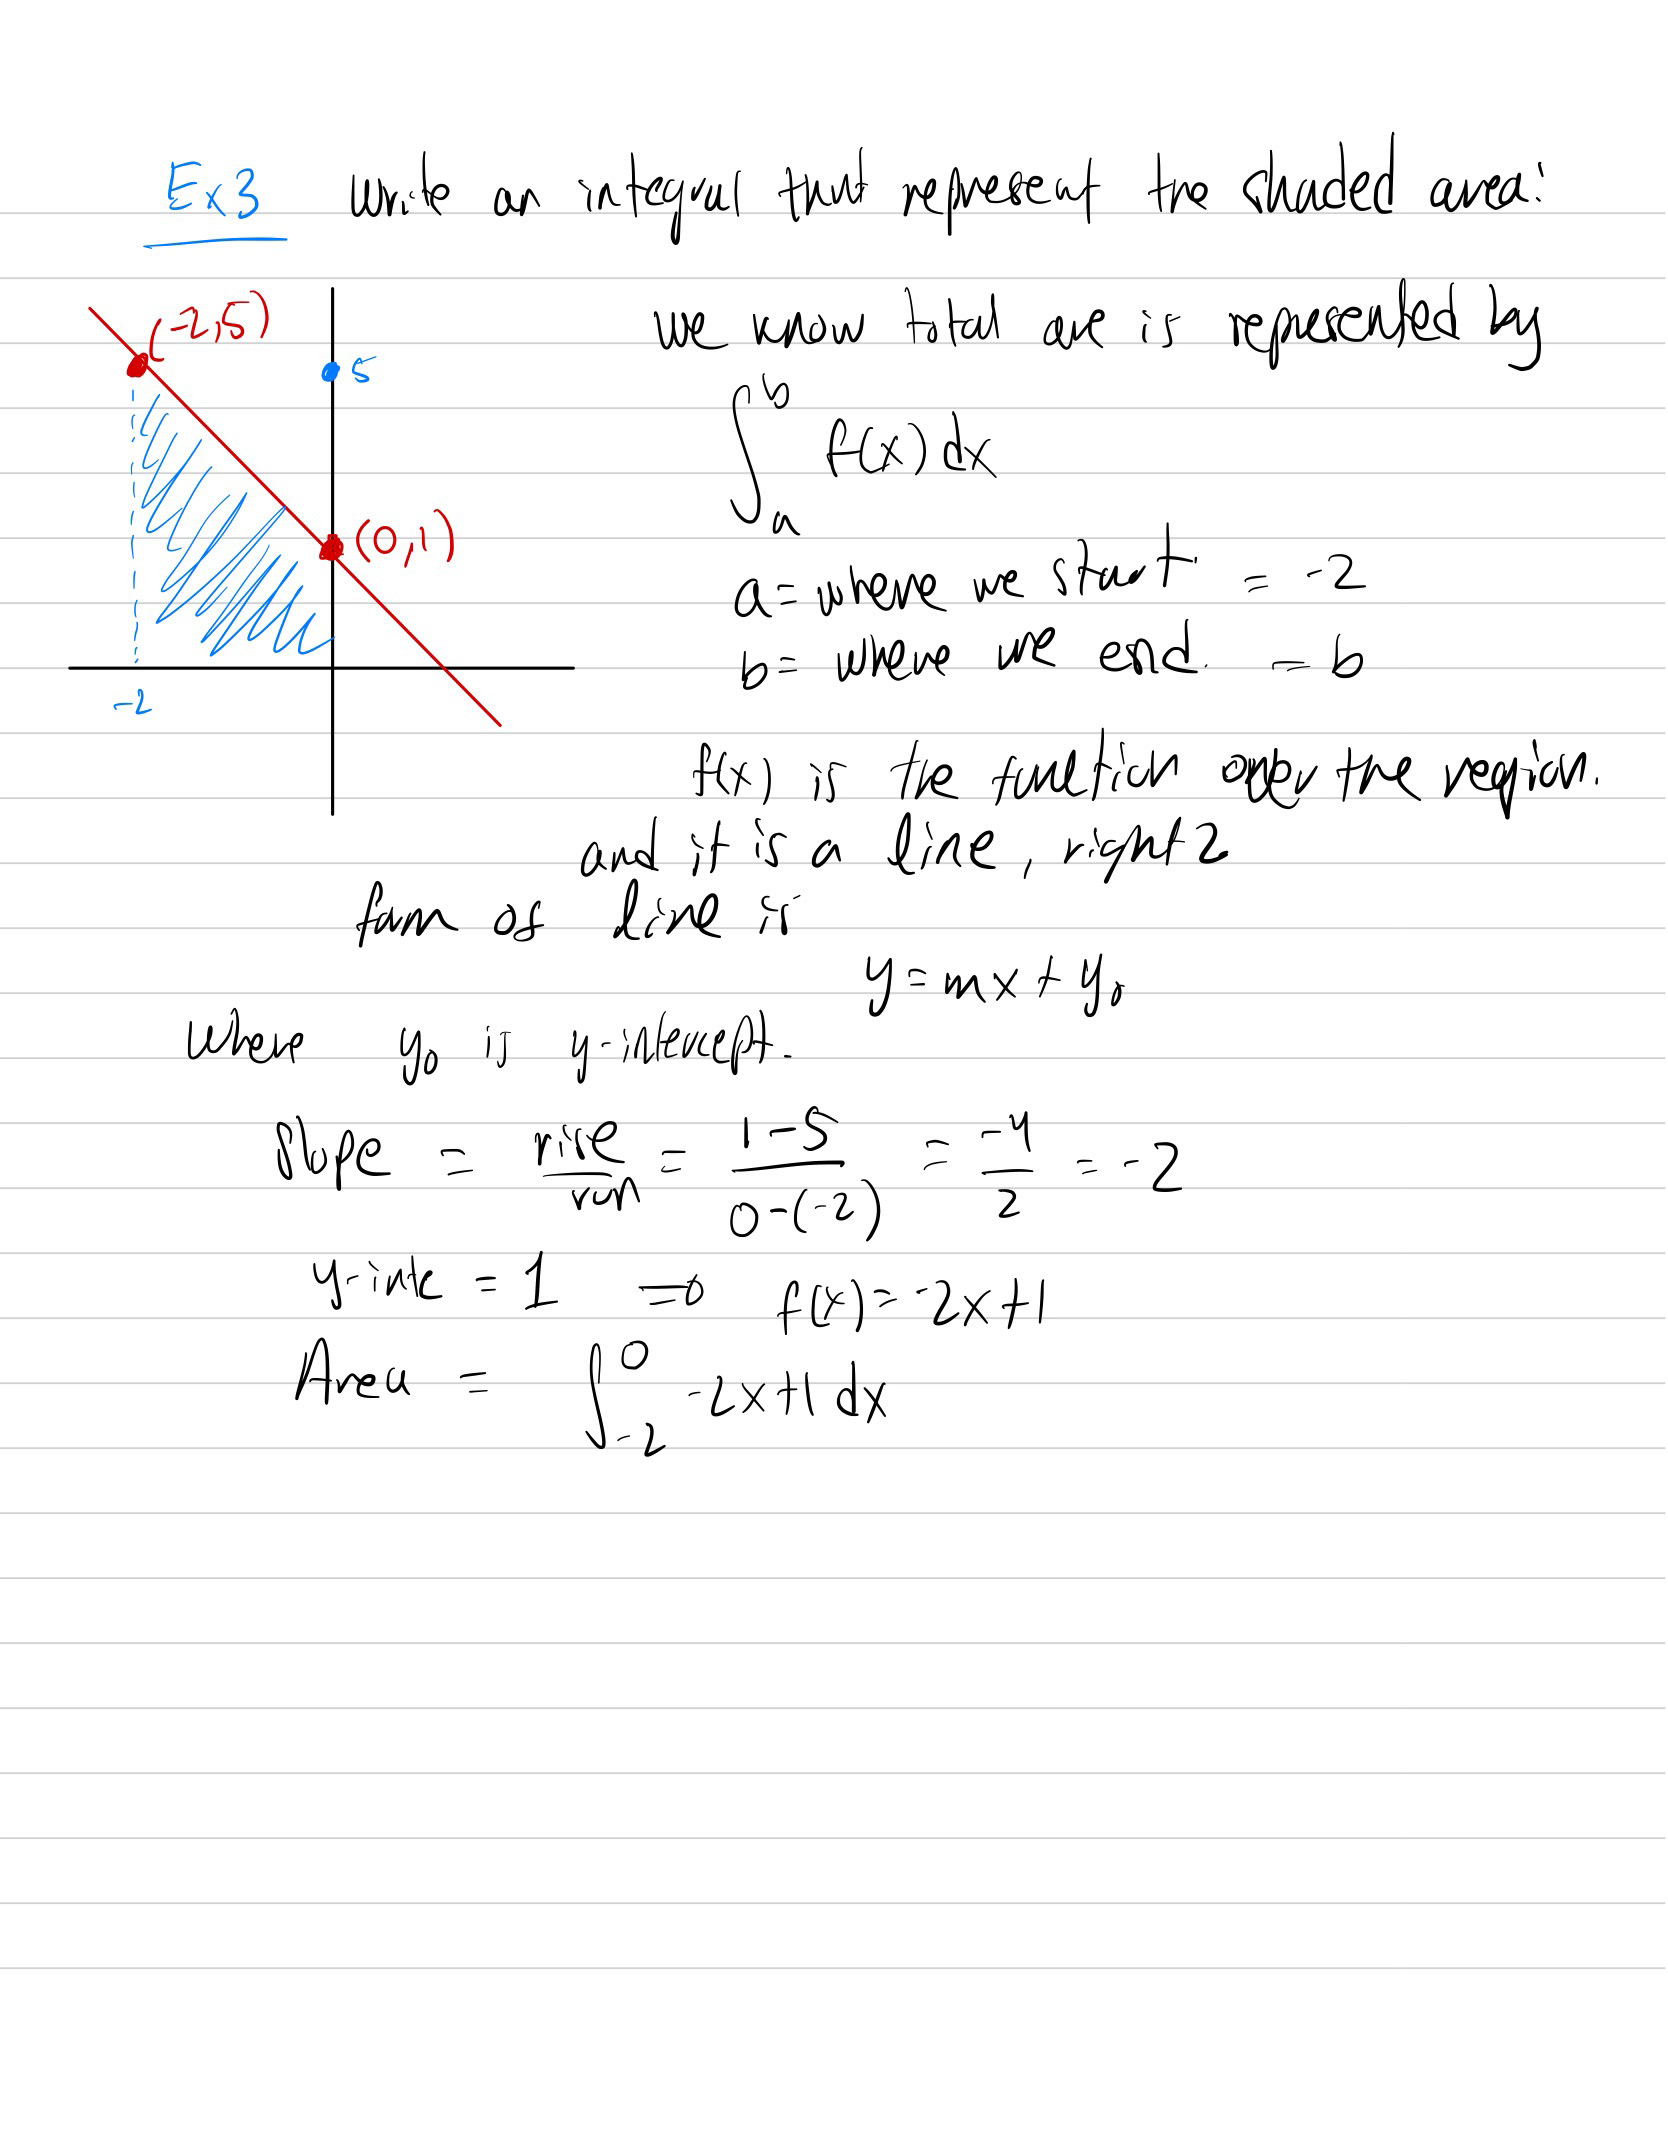 Ex3 Write an integral that represent the shaded area:
(-2,5)
5
(0,1)
-2
we know total are is represented by
∫_a^b f(x) dx
a = where we start. = -2
b = where we end. = b
f(x) is the function over the region.
and it is a line, right?
form of line is
y = mx + y₀
Where y₀ is y-intercept.
Slope = rise/run = (1-5)/(0-(-2)) = -4/2 = -2
y-inte = 1 ⇒ f(x) = -2x+1
Area = ∫_{-2}^0 -2x+1 dx